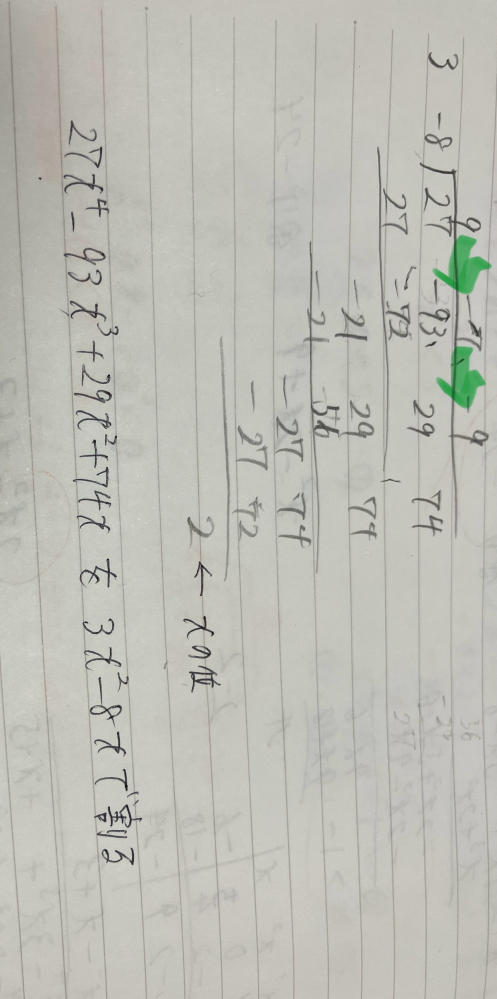 9 -7 -9
3 -8 ) 27 -93 29 74
27 -72
-21 29 74
-21 56
-27 74
-27 72
2 ← xの値
27x⁴-93x³+29x²+74x を 3x²-8xで割る